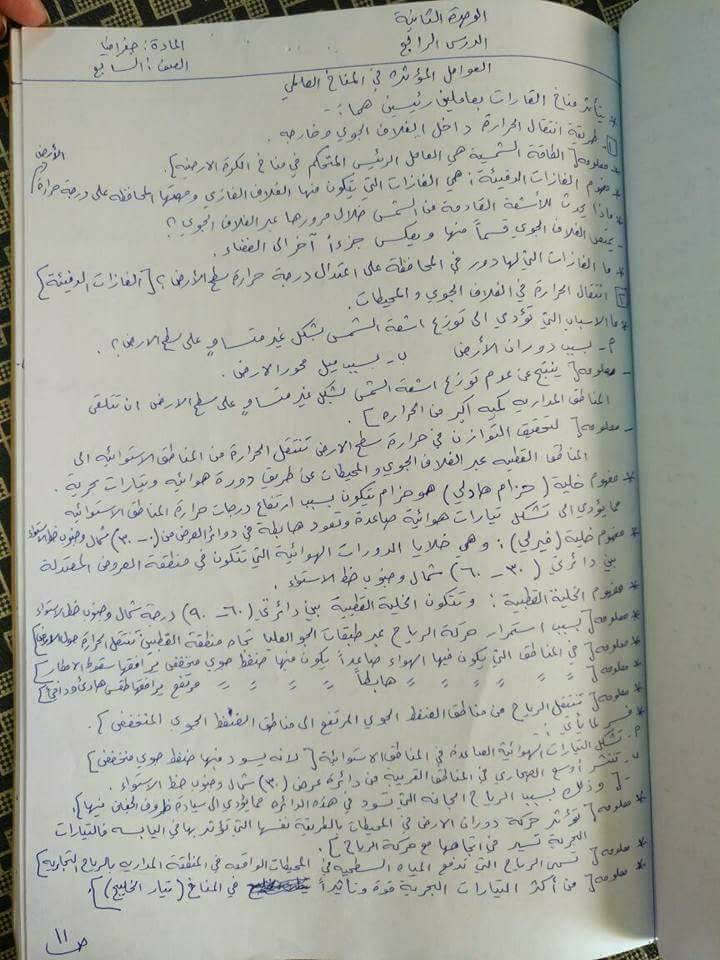 الوحدة الثانية
الدرس الرابع
المادة: جغرافيا
الصف: السابع
العوامل المؤثرة في المناخ العالمي
* يتأثر مناخ القارات بعاملين رئيسين هما:-
١ طريقة انتقال الحرارة داخل الغلاف الجوي وخارجه.
* معلومة [الطاقة الشمسية هي العامل الرئيس المتحكم في مناخ الكرة الارضية].
* مفهوم الغازات الدفيئة: هي الغازات التي يتكون منها الغلاف الغازي ومهمتها المحافظة على درجة حرارة الأرض
* ماذا يحدث للأشعة القادمة من الشمس خلال مرورها عبر الغلاف الجوي؟
- يمتص الغلاف الجوي قسماً منها ويعكس جزءاً آخر الى الفضاء.
* ما الغازات التي لها دور في المحافظة على اعتدال درجة حرارة سطح الأرض؟ [الغازات الدفيئة]
٢ انتقال الحرارة في الغلاف الجوي والمحيطات.
* ما الاسباب التي تؤدي الى توزع اشعة الشمس بشكل غير متساوٍ على سطح الارض؟
م- بسبب دوران الأرض ب- بسبب ميل محور الارض.
- معلومة [ينتج عن عدم توزع اشعة الشمس بشكل غير متساوٍ على سطح الارض ان تتلقى
المناطق المدارية كمية أكبر من الحرارة].
- معلومة [لتحقيق التوازن في حرارة سطح الارض تنتقل الحرارة من المناطق الاستوائية الى
المناطق القطبية عبر الغلاف الجوي والمحيطات عن طريق دورة هوائية وتيارات بحرية.
* مفهوم خلية (حزام هادلي) هو حزام يتكون بسبب ارتفاع درجات حرارة المناطق الاستوائية
مما يؤدي الى تشكل تيارات هوائية صاعدة وتعود هابطة في دوائر العرض من (٠-٣٠) شمال وجنوب خط الاستواء
* مفهوم خلية (فيرلي): وهي خلايا الدورات الهوائية التي تتكون في منطقة العروض المعتدلة
بين دائرتي (٣٠-٦٠) شمال وجنوب خط الاستواء.
* مفهوم الخلية القطبية: وتتكون الخلية القطبية بين دائرتي (٦٠-٩٠) درجة شمال وجنوب خط الاستواء
* معلومة [بسبب استمرار حركة الرياح عبر طبقات الجو العليا تجاه منطقة القطبين تنتقل الحرارة حول الارض]
* معلومة [في المناطق التي يكون فيها الهواء صاعداً يكون منها ضغط جوي منخفض يرافقها سقوط الامطار]
* معلومة [" " " " " هابطاً " " " " مرتفع يرافقها طقس هادئ ودافئ]
* معلومة [تنتقل الرياح من مناطق الضغط الجوي المرتفع الى مناطق الضغط الجوي المنخفض].
* فسر لما يأتي:-
م- تشكل التيارات الهوائية الصاعدة في المناطق الاستوائية [لانه يسود منها ضغط جوي منخفض]
ب- تنتشر أوسع الصحاري في المناطق القريبة من دائرة عرض (٣٠) شمال وجنوب خط الاستواء.
- [وذلك بسبب الرياح الجافة التي تسود في هذه الدائرة مما يؤدي الى سيادة ظروف الجفاف فيها].
* معلومة [تؤثر حركة دوران الارض في المحيطات بالطريقة نفسها التي تؤثر بها في اليابسة فالتيارات
البحرية تسير في اتجاهها مع حركة الرياح].
* معلومة [تسمى الرياح التي تدفع المياه السطحية في المحيطات الواقعة في المنطقة المدارية بالرياح التجارية]
* معلومة [من أكثر التيارات البحرية قوة وتأثيراً في المناخ (تيار الخليج)]
ص ١١